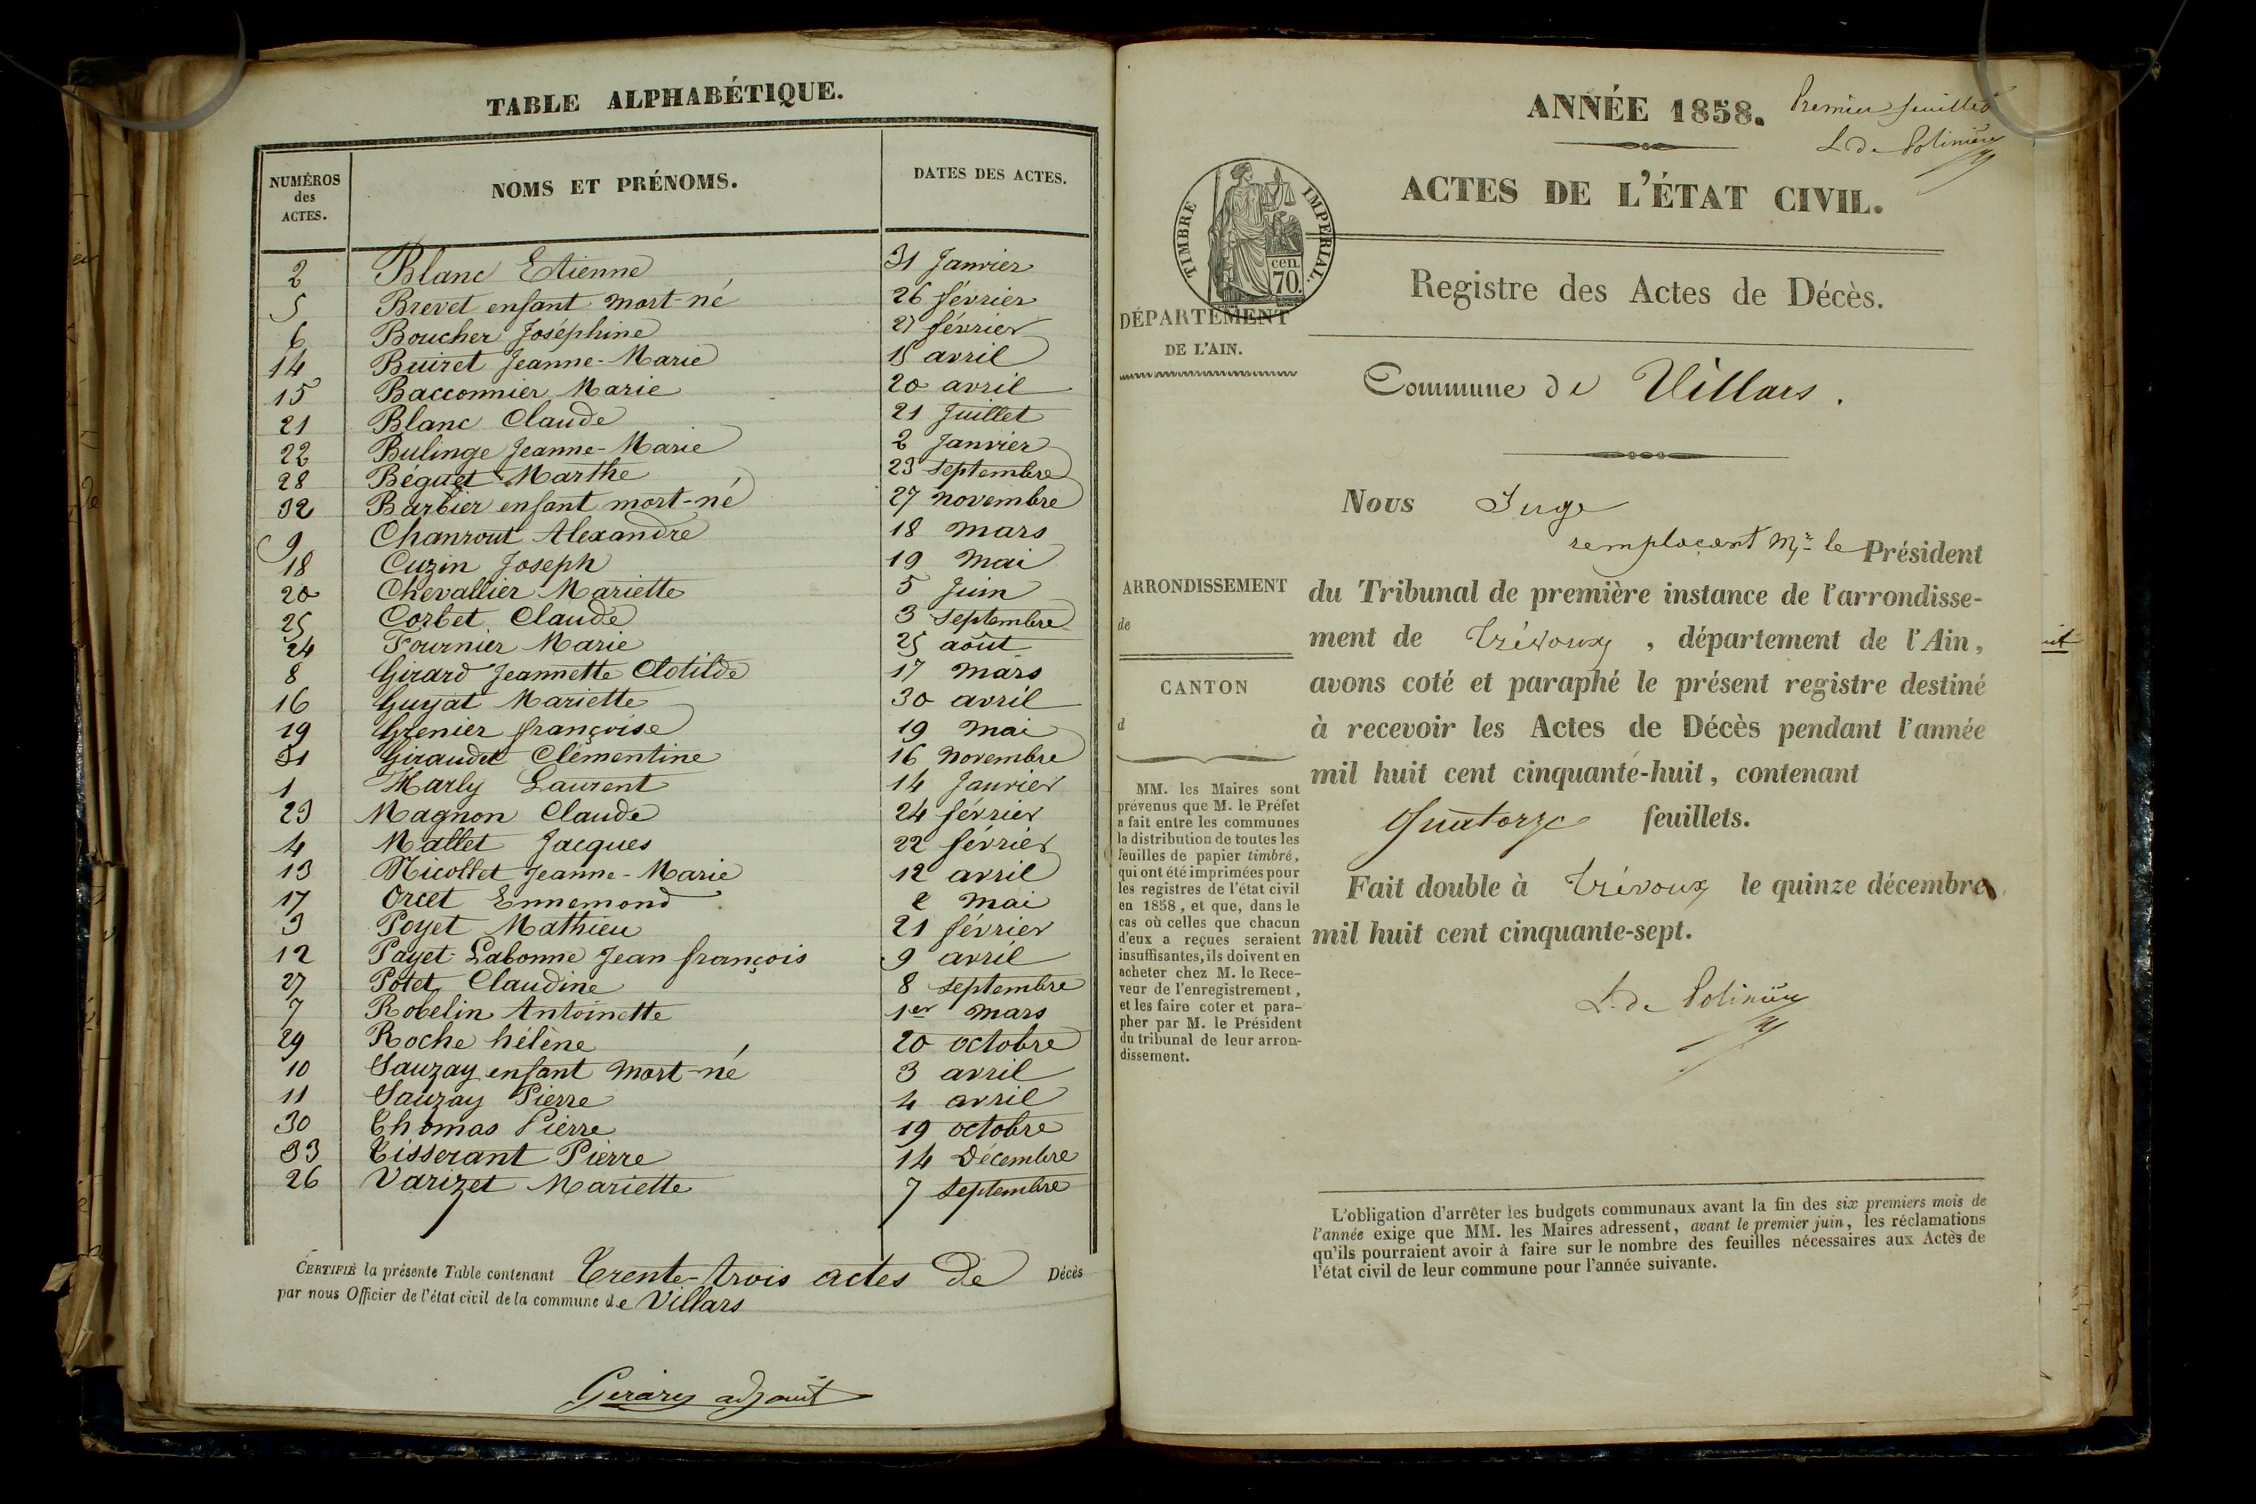 TABLE ALPHABÉTIQUE.
NUMÉROS des ACTES. NOMS ET PRÉNOMS. DATES DES ACTES.
2 Blanc Etienne 31 Janvier
5 Brevet enfant mort-né 26 février
6 Boucher Joséphine 27 février
14 Buiret Jeanne-Marie 15 avril
15 Bacconnier Marie 20 avril
21 Blanc Claude 21 Juillet
22 Bulinge Jeanne-Marie 2 Janvier
28 Béguet Marthe 23 septembre
32 Barbier enfant mort-né 27 novembre
9 Chanrout Alexandre 18 mars
18 Cuzin Joseph 19 Mai
20 Chevallier Mariette 5 Juin
25 Corbet Claude 3 Septembre
24 Fournier Marie 25 août
8 Girard Jeannette Clotilde 17 mars
16 Guyat Mariette 30 avril
19 Grenier françoise 19 mai
31 Giraudet Clémentine 16 novembre
1 Harly Laurent 14 Janvier
23 Magnon Claude 24 février
4 Mallet Jacques 22 février
13 Nicollet Jeanne-Marie 12 avril
17 Orcet Ennemond 2 Mai
3 Poyet Mathieu 21 février
12 Payet-Labonne Jean françois 9 avril
27 Potet Claudine 8 septembre
7 Robelin Antoinette 1er mars
29 Roche hélène 20 octobre
10 Sauzay enfant mort-né 3 avril
11 Sauzay Pierre 4 avril
30 Thomas Pierre 19 octobre
33 Tisserant Pierre 14 Décembre
26 Varizet Mariette 7 septembre
CERTIFIÉ la présente Table contenant Trente-trois actes de Décès
par nous Officier de l'état civil de la commune de Villars
adjoint
ANNÉE 1858. Premier feuillet
L. de Polinière
ACTES DE L'ÉTAT CIVIL.
TIMBRE IMPÉRIAL.
cen.
70.
Registre des Actes de Décès.
DÉPARTEMENT
DE L'AIN.
Commune de Villars.
Nous Juge
remplaçant Mr le Président
ARRONDISSEMENT
de
CANTON
d
du Tribunal de première instance de l'arrondisse-
ment de Trévoux, département de l'Ain,
avons coté et paraphé le présent registre destiné
à recevoir les Actes de Décès pendant l'année
mil huit cent cinquante-huit, contenant
Quatorze feuillets.
Fait double à Trévoux le quinze décembre
mil huit cent cinquante-sept.
L. de Polinière
MM. les Maires sont
prévenus que M. le Préfet
a fait entre les communes
la distribution de toutes les
feuilles de papier timbré,
qui ont été imprimées pour
les registres de l'état civil
en 1858, et que, dans le
cas où celles que chacun
d'eux a reçues seraient
insuffisantes, ils doivent en
acheter chez M. le Rece-
veur de l'enregistrement,
et les faire coter et para-
pher par M. le Président
du tribunal de leur arron-
dissement.
L'obligation d'arrêter les budgets communaux avant la fin des six premiers mois de
l'année exige que MM. les Maires adressent, avant le premier juin, les réclamations
qu'ils pourraient avoir à faire sur le nombre des feuilles nécessaires aux Actes de
l'état civil de leur commune pour l'année suivante.